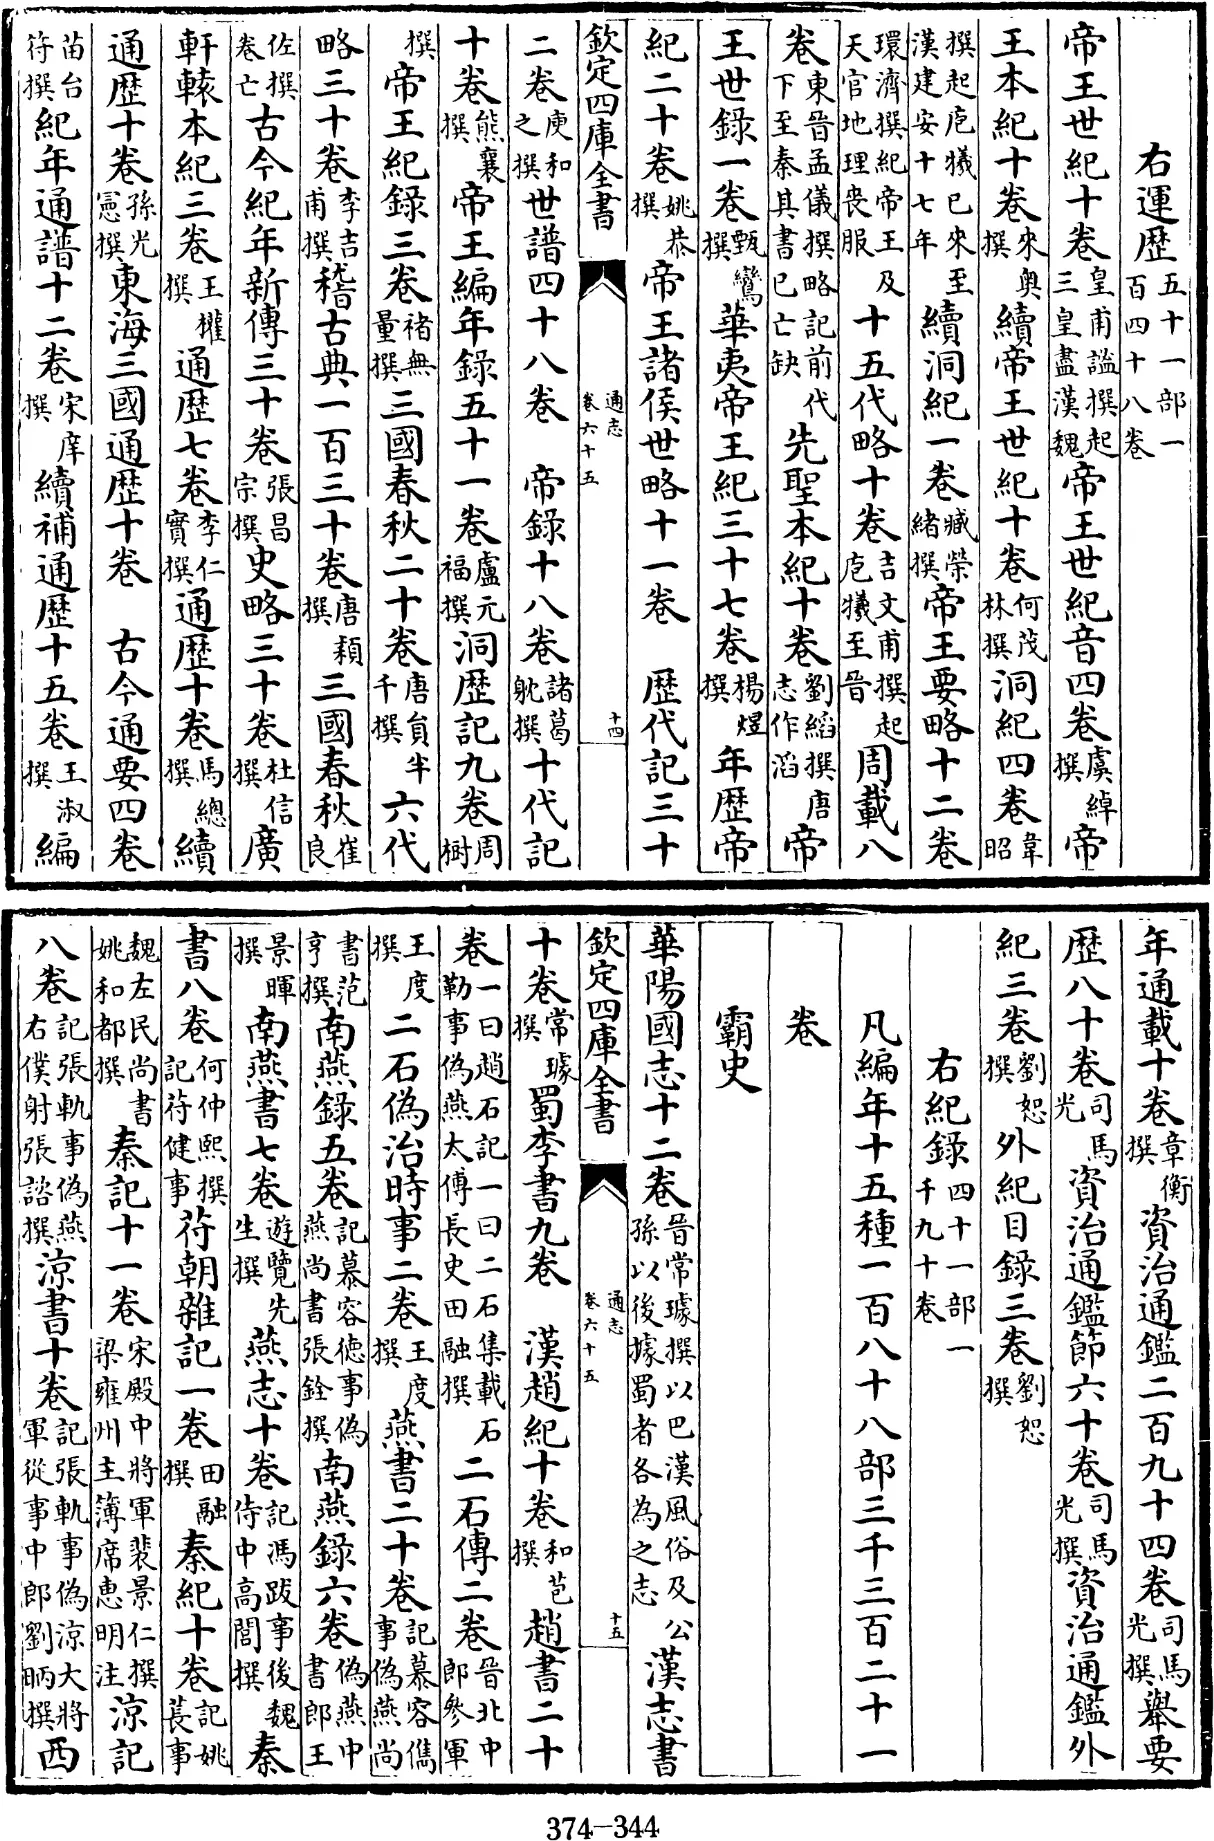 右運歴五十一部一百四十八卷
帝王世紀十卷皇甫謐撰起三皇盡漢魏帝王世紀音四卷虞綽撰帝
王本紀十卷來奥撰續帝王世紀十卷何茂林撰洞紀四卷韋昭
撰起庖犧已來至漢建安十七年續洞紀一卷臧榮緒撰帝王要略十二卷
環濟撰紀帝王及天官地理喪服十五代略十卷吉文甫撰起庖犧至晉周載八
卷東晉孟儀撰略記前代下至秦其書已亡缺先聖本紀十卷劉縚撰唐志作滔帝
王世錄一卷甄鸞撰華夷帝王紀三十七卷楊煜撰年歴帝
紀二十卷姚恭撰帝王諸侯世略十一卷 歴代記三十
欽定四庫全書 通志卷六十五 十四
二卷庾和之撰世譜四十八卷 帝錄十八卷諸葛躭撰十代記
十卷熊襄撰帝王編年錄五十一卷盧元福撰洞歴記九卷周樹
撰帝王紀錄三卷褚無量撰三國春秋二十卷唐員半千撰六代
略三十卷李吉甫撰稽古典一百三十卷唐潁撰三國春秋崔良
佐撰卷亡古今紀年新傳三十卷張昌宗撰史略三十卷杜信撰廣
軒轅本紀三卷王瓘撰通歴七卷李仁實撰通歴十卷馬總撰續
通歴十卷孫光憲撰東海三國通歴十卷 古今通要四卷
苗台符撰紀年通譜十二卷宋庠撰續補通歴十五卷王淑撰編
年通載十卷章衡撰資治通鑑二百九十四卷司馬光撰舉要
歴八十卷司馬光資治通鑑節六十卷司馬光撰資治通鑑外
紀三卷劉恕撰外紀目錄三卷劉恕撰
右紀錄四十一部一千九十卷
凡編年十五種一百八十八部三千三百二十一
卷
霸史
華陽國志十二卷晉常璩撰以巴漢風俗及公孫以後據蜀者各為之志漢志書
欽定四庫全書 通志卷六十五 十五
十卷常璩撰蜀李書九卷 漢趙紀十卷和苞撰趙書二十
卷一曰趙石記一曰二石集載石勒事偽燕太傅長史田融撰二石傳二卷晉北中郎參軍
王度撰二石偽治時事二卷王度撰燕書二十卷記慕容儁事偽燕尚
書范亨撰南燕錄五卷記慕容德事偽燕尚書張銓撰南燕錄六卷偽燕中書郎王
景暉撰南燕書七卷遊覽先生撰燕志十卷記馮跋事後魏侍中高閭撰秦
書八卷何仲熙撰記苻健事苻朝雜記一卷田融撰秦紀十卷記姚萇事
魏左民尚書姚和都撰秦記十一卷宋殿中將軍裴景仁撰梁雍州主簿席惠明注涼記
八卷記張軌事偽燕右僕射張諮撰涼書十卷記張軌事偽涼大將軍從事中郎劉昞撰西
374-344